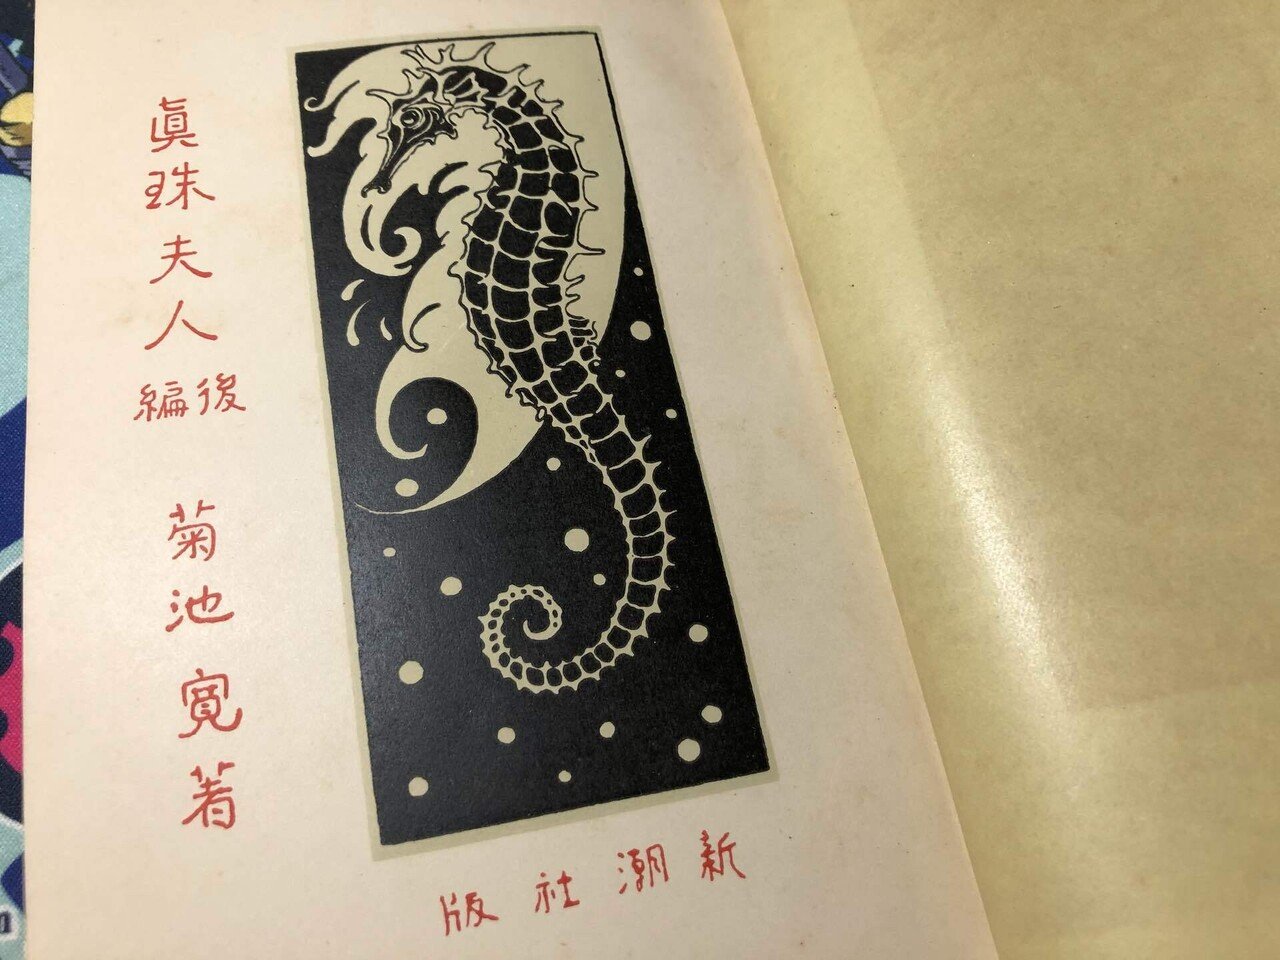 眞珠夫人
後編
菊池寛著
新潮社版